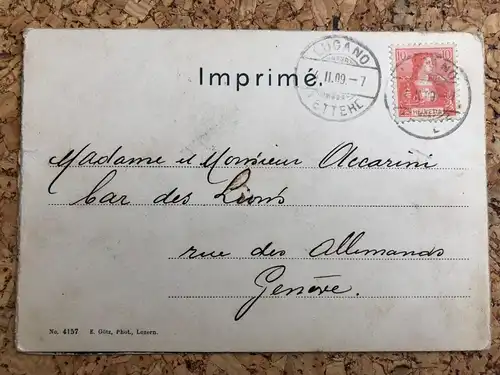 LUGANO
II.09.-7
LETTERE
10
HELVETIA
Imprimé.
Madame et Monsieur Accarini
Bar des Lions
rue des Allemands
Genève.
No. 4157 E. Götz, Phot., Luzern.